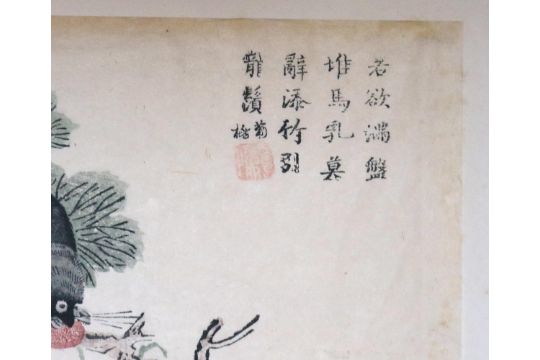 若欲滿盤
堆馬乳莫
辭添竹引
龍鬚
菊